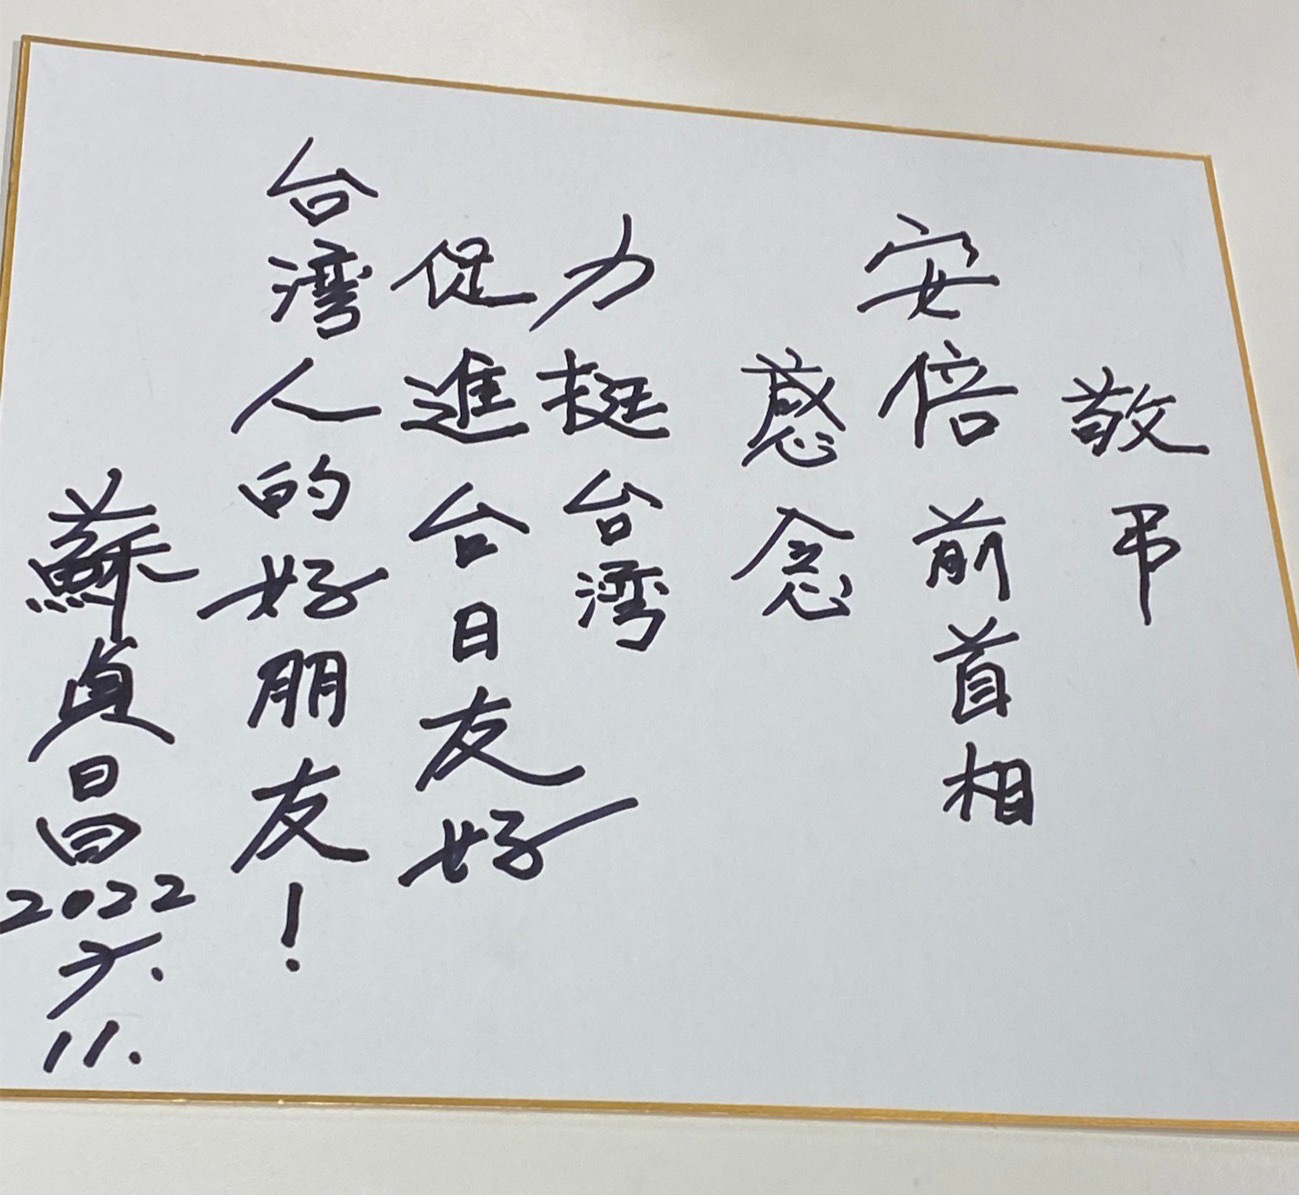 敬弔
安倍前首相
感念
力挺台湾
促進台日友好
台湾人的好朋友！
蘇貞昌
2022
7.
11.